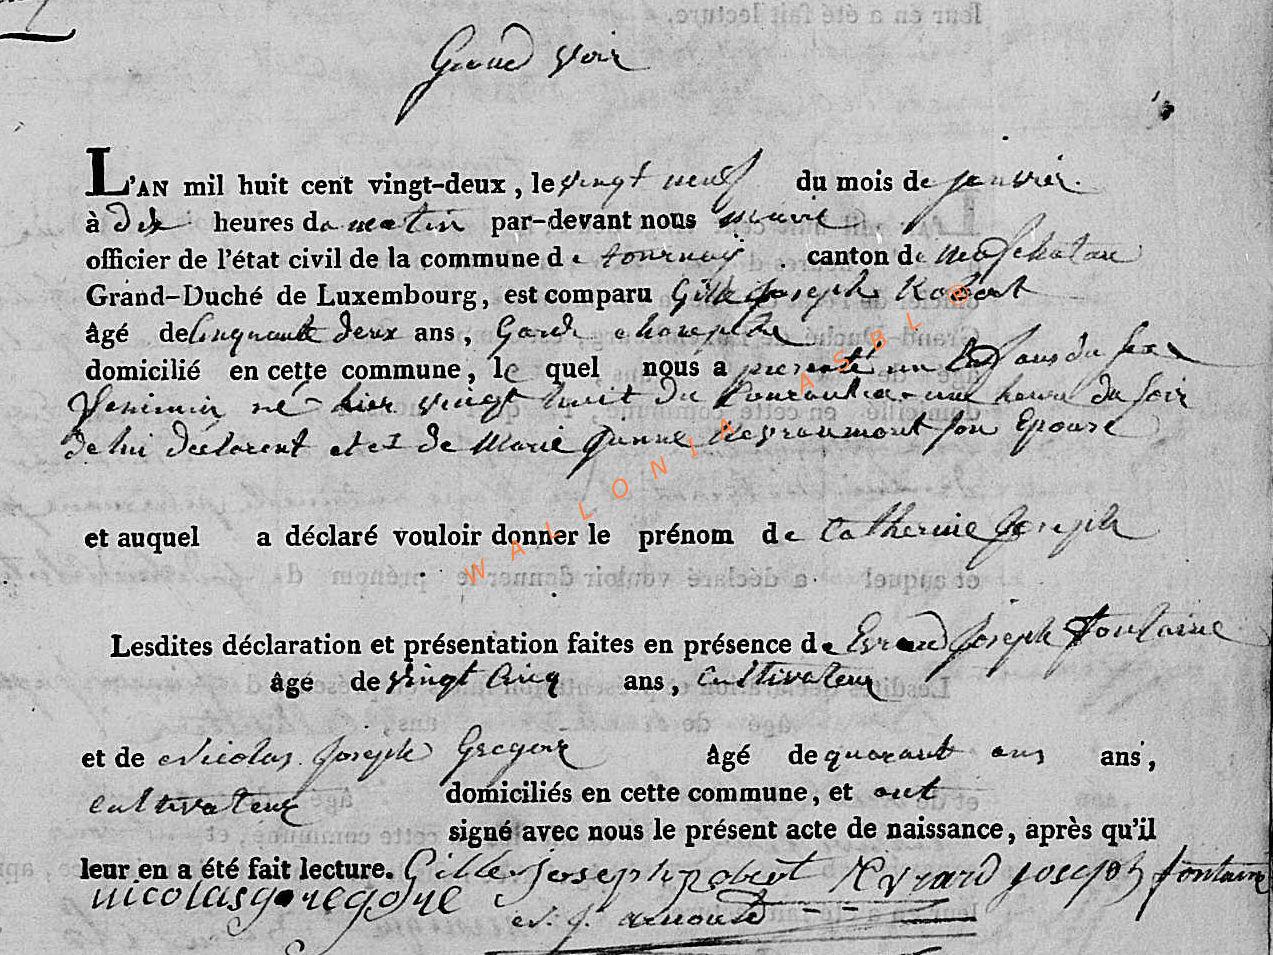 Grand voir
L'AN mil huit cent vingt-deux, le vingt neuf du mois de janvier
à dix heures du matin par-devant nous maire
officier de l'état civil de la commune de tournay canton de neufchateau
Grand-Duché de Luxembourg, est comparu Gille Joseph Robert
âgé de Cinquante deux ans, Garde
domicilié en cette commune, le quel nous a presenté un Enfant du sexe
feminin né hier vingt huit du Courant a une heure du soir
de lui déclarent et de Marie Jeanne son Epouse
et auquel a déclaré vouloir donner le prénom de Catherine Joseph
Lesdites déclaration et présentation faites en présence de Evrard Joseph fontaine
âgé de vingt Cinq ans, Cultivateur
et de Nicolas Joseph Gregoire âgé de quarant ans ans,
cultivateur domiciliés en cette commune, et ont
signé avec nous le présent acte de naissance, après qu'il
leur en a été fait lecture. Gille Joseph robert Evrard joseph fontaine
nicolas gregoire
arnould
WALLONIA ASBL ©